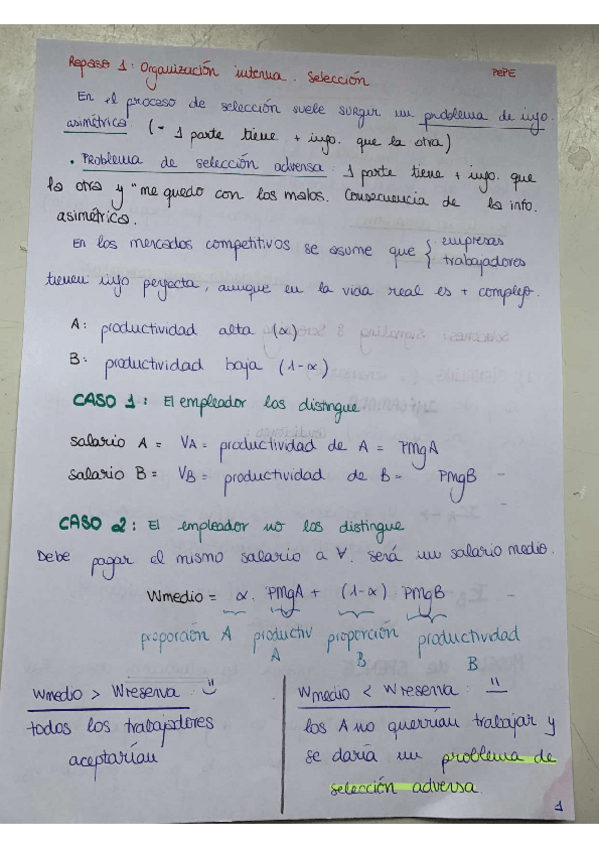 Repaso 1: Organización interna. Selección
PEPE
En el proceso de selección suele surgir un problema de info.
asimétrica (- 1 parte tiene + info. que la otra)
• Problema de selección adversa: 1 parte tiene + info. que
la otra y "me quedo con los malos. Consecuencia de la info.
asimétrica.
En los mercados competitivos se asume que { empresas
trabajadores
tienen info perfecta, aunque en la vida real es + complejo.
A: productividad alta (α)
B: productividad baja (1-α)
CASO 1: El empleador los distingue
salario A = VA = productividad de A = PMgA
salario B = VB = productividad de B = PMgB
CASO 2: El empleador no los distingue
Debe pagar el mismo salario a ∀. será un salario medio.
Wmedio = α. PMgA + (1-α) PMgB
proporción A productiv A proporción B productividad B
Wmedio > Wreserva: :)
todos los trabajadores
aceptarían
Wmedio < Wreserva:
los A no querrían trabajar y
se daría un problema de
selección adversa
1